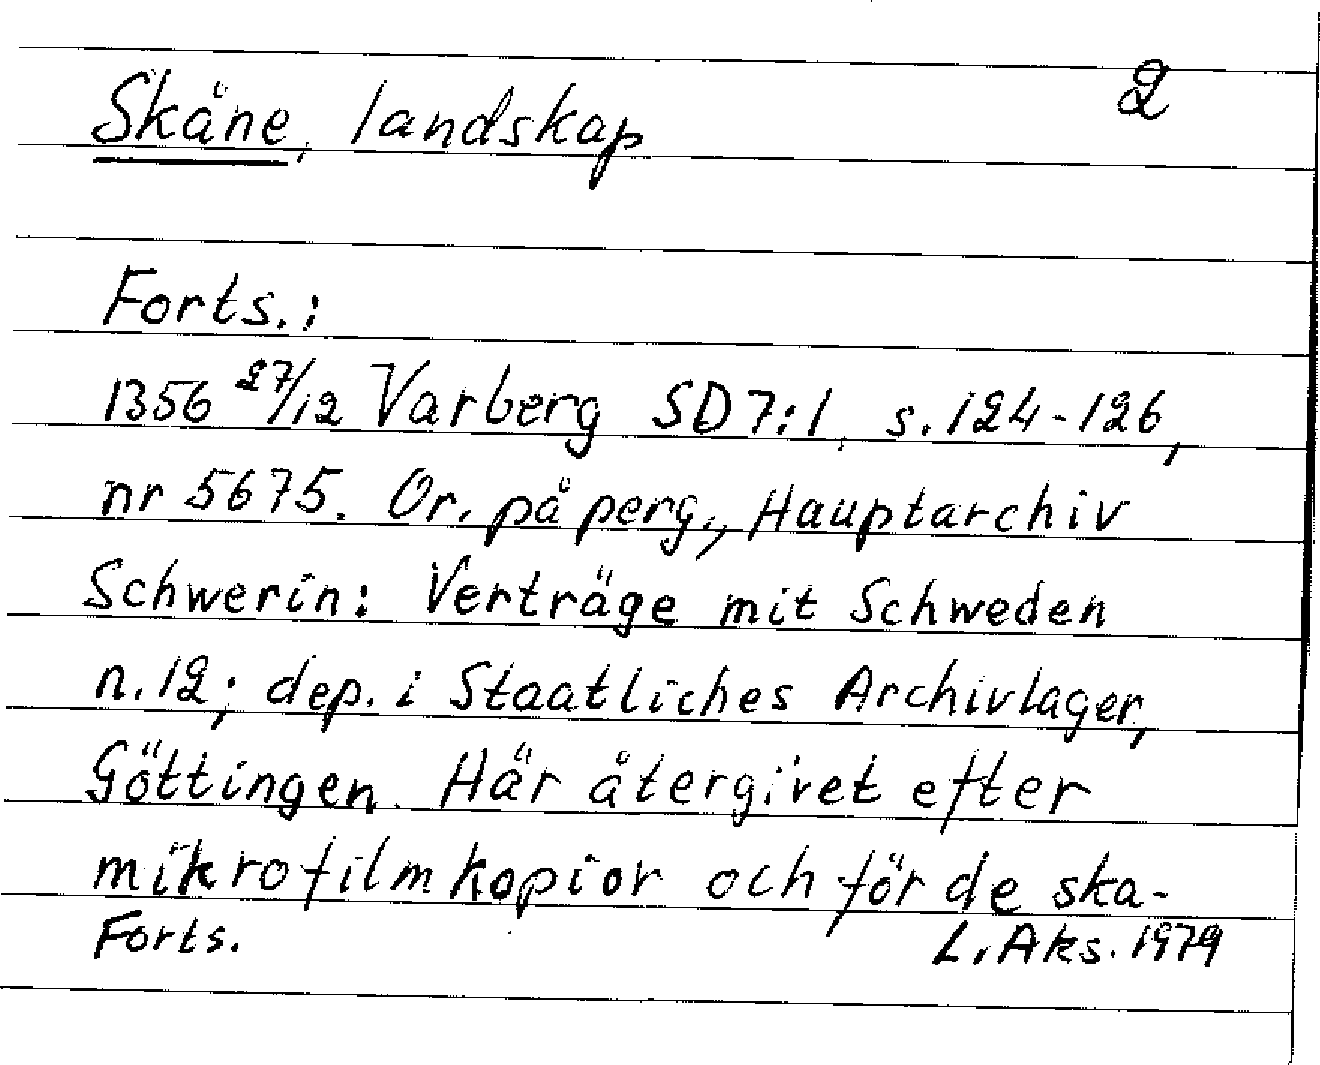 Skåne, landskap 2
Forts.:
1356 27/12 Varberg SD 7:1, s. 124-126,
nr 5675. Or. på perg., Hauptarchiv
Schwerin: Verträge mit Schweden
n. 12; dep. i Staatliches Archivlager,
Göttingen. Här återgivet efter
mikrofilmkopior och för de ska-
Forts. L. Aks. 1979